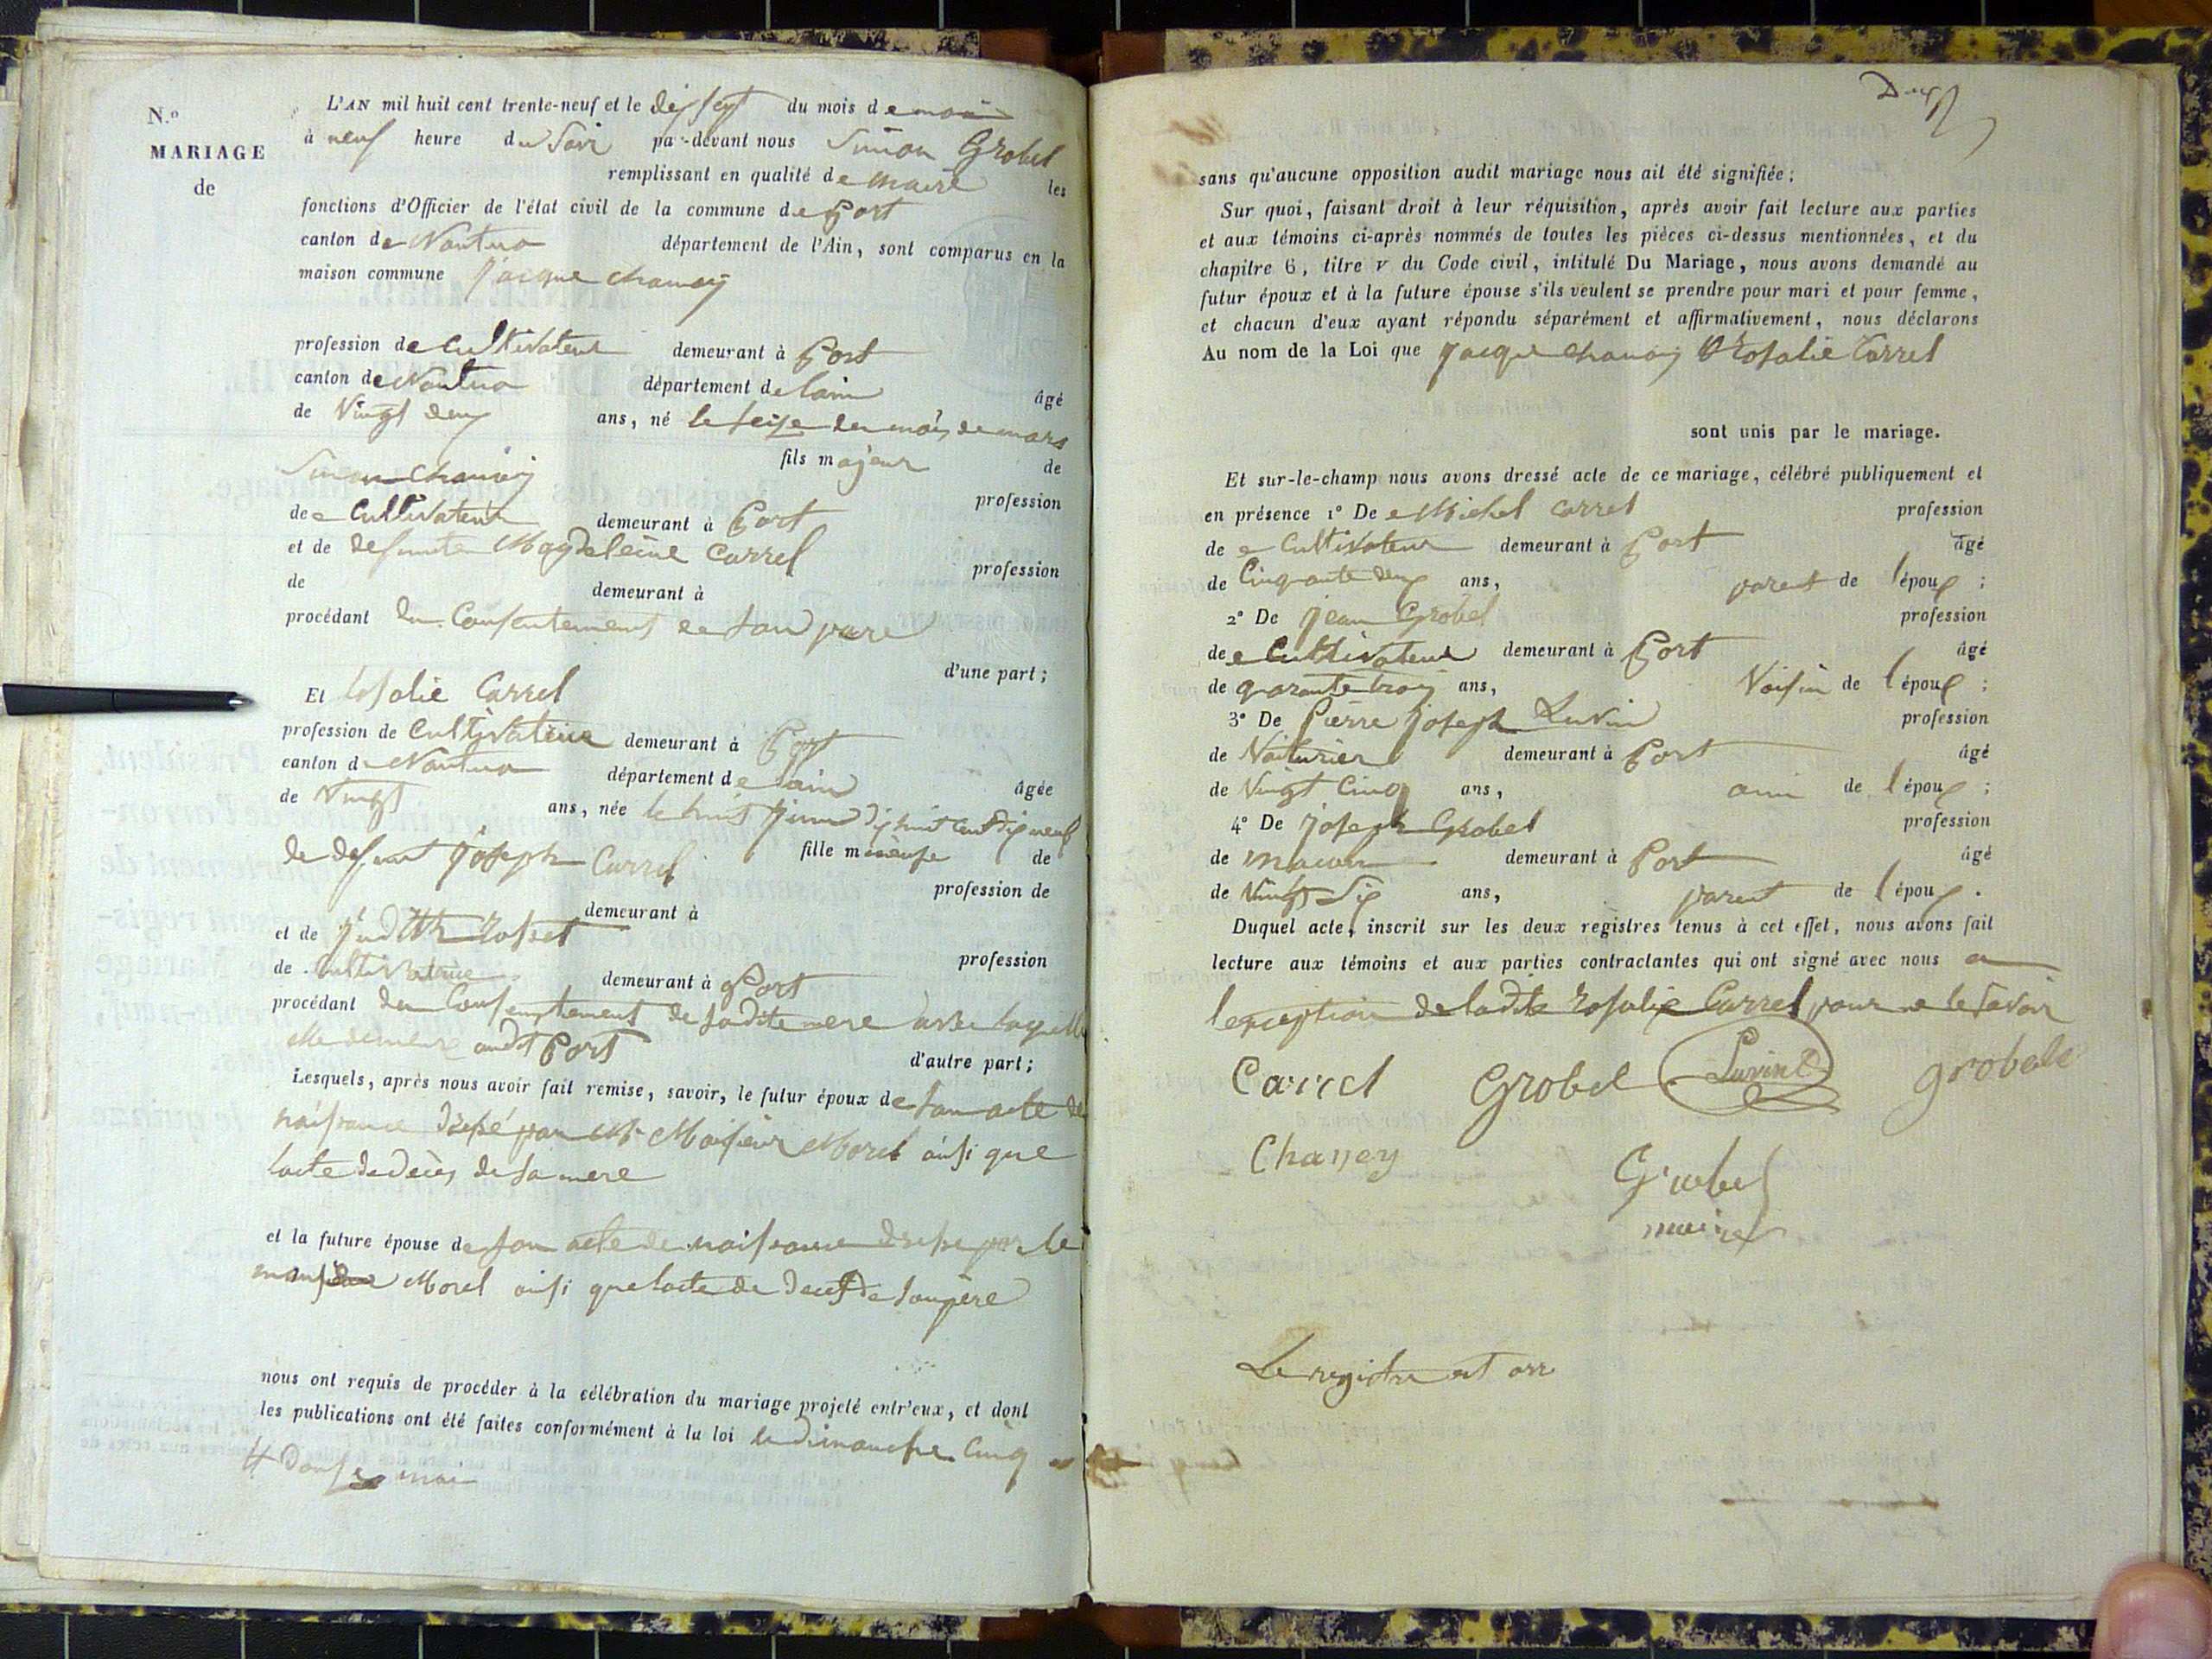 N.o
MARIAGE
de
L'AN mil huit cent trente-neuf et le dix sept du mois de mai
à neuf heure du Soir par-devant nous Simon Grobel
remplissant en qualité de maire les
fonctions d'Officier de l'état civil de la commune de Port
canton de Nantua département de l'Ain, sont comparus en la
maison commune Jacque chanay
profession de Cultivateur demeurant à Port
canton de Nantua département de lain âgé
de Vingt deux ans, né le seize du mois de mars
fils majeur de
Simon chanay profession
de Cultivateur demeurant à Port
et de defunte Magdeleine Carrel profession
de demeurant à
procédant du Consentement de son pere
d'une part;
Et Rosalie Carrel
profession de Cultivatrice demeurant à Port
canton de Nantua département de lain âgée
de Vingt ans, née le huit Juin dix huit cent dix neuf
fille mineure de
de defunt Joseph Carrel profession de
demeurant à
et de Judith Rosset profession
de Cultivatrice demeurant à Port
procédant du Consentement de sadite mere avec laquelle
elle demeure audit Port d'autre part;
Lesquels, après nous avoir fait remise, savoir, le futur époux de son acte de
naissance par Mr Morel ainsi que
lacte de deces de sa mere
et la future épouse de son acte de naissance par le
Morel ainsi que lacte de deces de son père
nous ont requis de procéder à la célébration du mariage projeté entr'eux, et dont
les publications ont été faites conformément à la loi le dimanche Cinq et
douse mai
sans qu'aucune opposition audit mariage nous ait été signifiée;
Sur quoi, faisant droit à leur réquisition, après avoir fait lecture aux parties
et aux témoins ci-après nommés de toutes les pièces ci-dessus mentionnées, et du
chapitre 6, titre v du Code civil, intitulé Du Mariage, nous avons demandé au
futur époux et à la future épouse s'ils veulent se prendre pour mari et pour femme,
et chacun d'eux ayant répondu séparément et affirmativement, nous déclarons
Au nom de la Loi que Jacque chanay & Rosalie Carrel
sont unis par le mariage.
Et sur-le-champ nous avons dressé acte de ce mariage, célébré publiquement et
en présence 1° De Michel Carrel profession
de Cultivateur demeurant à Port âgé
de Cinquante deux ans, parent de l'époux;
2° De Jean Grobel profession
de Cultivateur demeurant à Port âgé
de quarante trois ans, Voisin de l'époux;
3° De Pierre Joseph Luvin profession
de Voiturier demeurant à Port âgé
de Vingt Cinq ans, ami de l'époux;
4° De Joseph Grobel profession
de macon demeurant à Port âgé
de Vingt Six ans, parent de l'époux.
Duquel acte, inscrit sur les deux registres tenus à cet effet, nous avons fait
lecture aux témoins et aux parties contractantes qui ont signé avec nous a
lexception de ladite Rosalie Carrel pour ne le Savoir
Carrel Grobel Luvin grobele
Chaney Grobel
maire
Le registre est arr